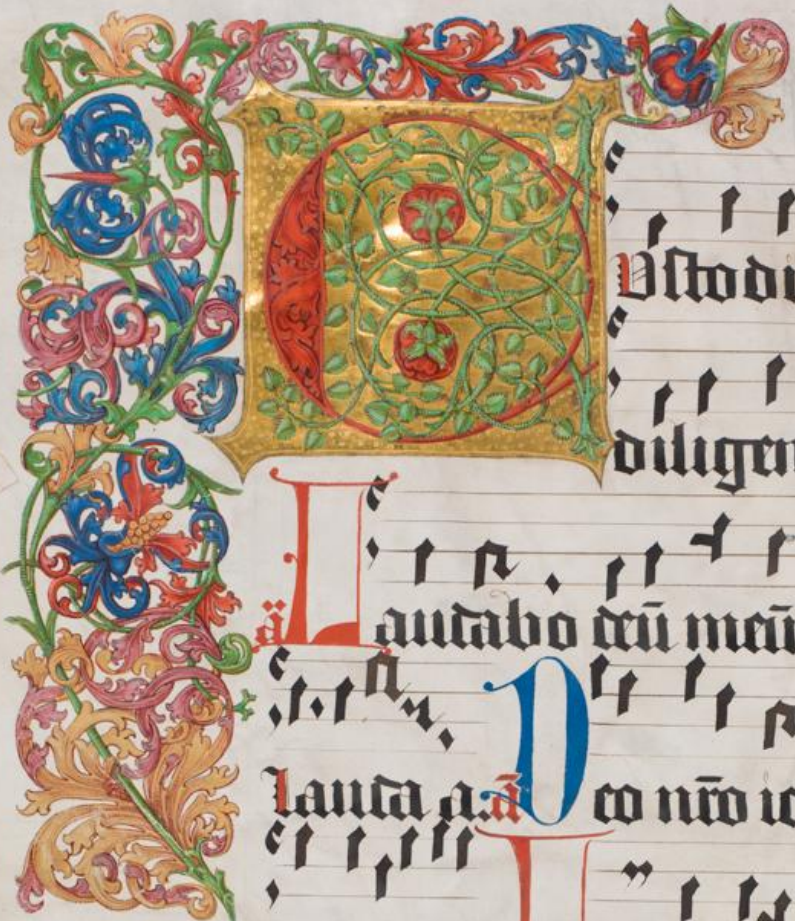 CVstodi
diligen
ā Laudabo deū meū
Lauda a. ā Deo nr̄o io